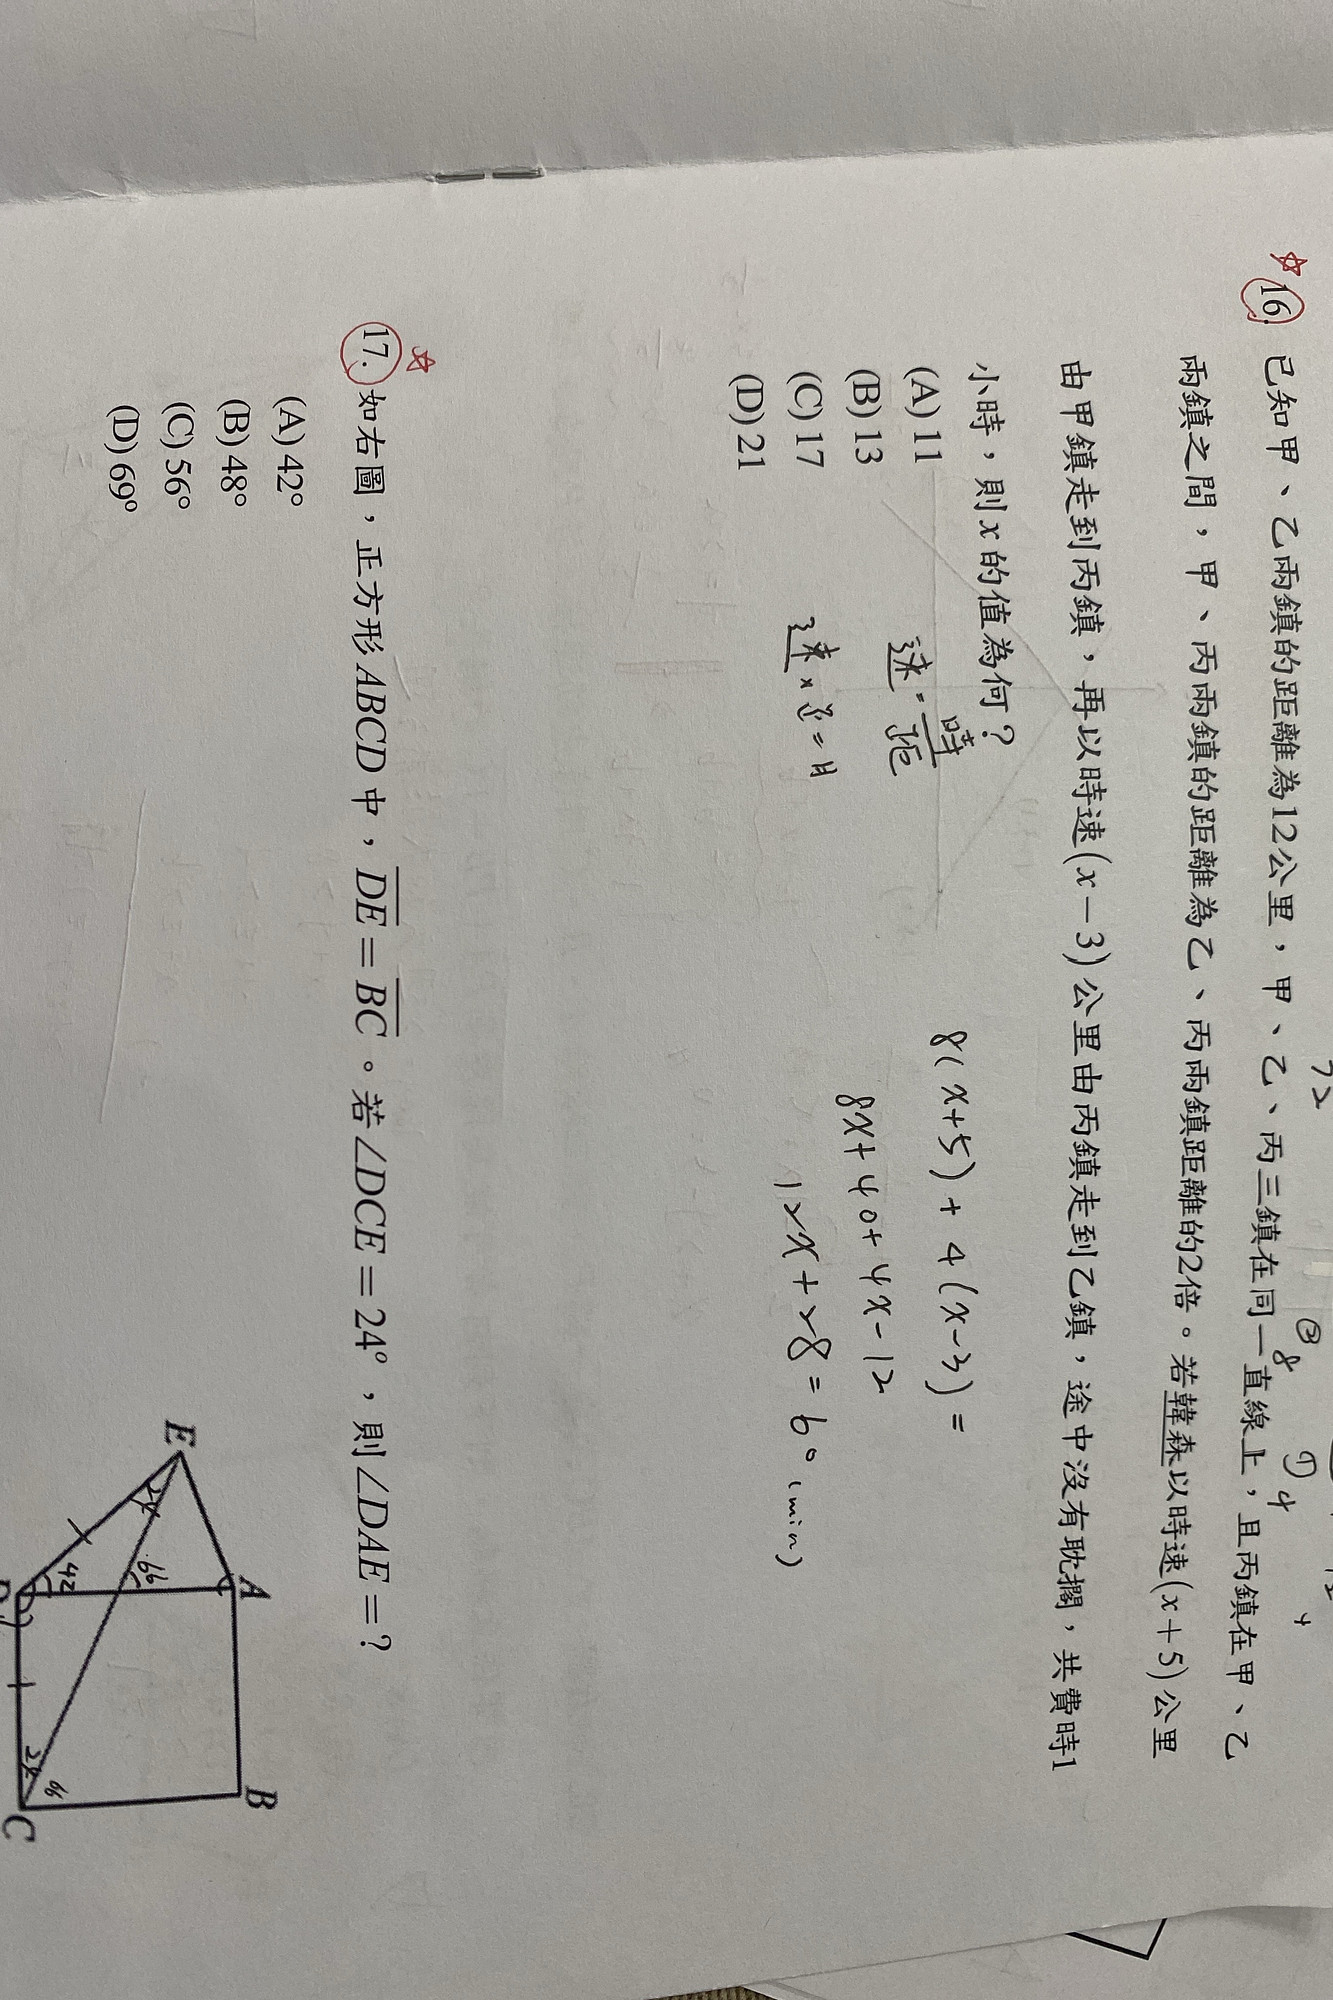 16. 已知甲、乙兩鎮的距離為12公里,甲、乙、丙三鎮在同一直線上,且丙鎮在甲、乙
兩鎮之間,甲、丙兩鎮的距離為乙、丙兩鎮距離的2倍。若韓森以時速(x+5)公里
由甲鎮走到丙鎮,再以時速(x−3)公里由丙鎮走到乙鎮,途中沒有耽擱,共費時1
小時,則x的值為何?
(A) 11
(B) 13
(C) 17
(D) 21
8(x+5)+4(x-3)=
8x+40+4x-12
12x+28=60(min)
17. 如右圖,正方形ABCD中,DE=BC。若∠DCE=24°,則∠DAE=?
(A) 42°
(B) 48°
(C) 56°
(D) 69°
E
A
B
C
42
66
24
66